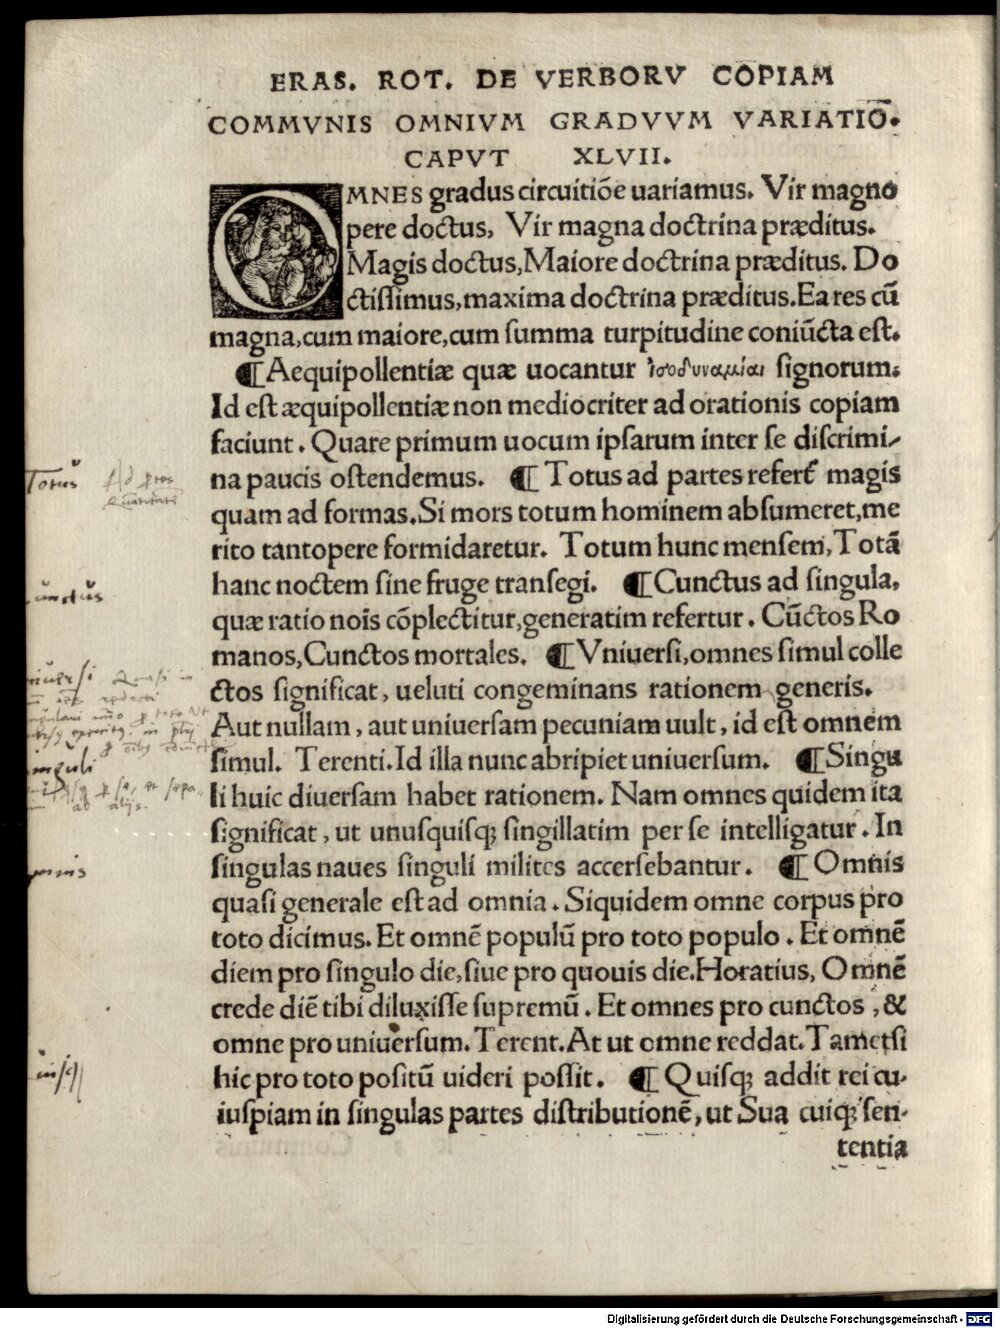 ERAS. ROT. DE VERBORV COPIAM
COMMVNIS OMNIVM GRADVVM VARIATIŌ.
CAPVT XLVII.
OMNES gradus circuitiōe uariamus. Vir magno
pere doctus, Vir magna doctrina præditus.
Magis doctus, Maiore doctrina præditus. Do
ctissimus, maxima doctrina præditus. Ea res cū
magna, cum maiore, cum summa turpitudine coniūcta est.
¶ Aequipollentiæ quæ uocantur ἰσοδυναμίαι signorum.
Id est æquipollentiæ non mediocriter ad orationis copiam
faciunt. Quare primum uocum ipsarum inter se discrimi-
na paucis ostendemus. ¶ Totus ad partes refert̃ magis
quam ad formas. Si mors totum hominem absumeret, me
rito tantopere formidaretur. Totum hunc mensem, Totā
hanc noctem sine fruge transegi. ¶ Cunctus ad singula,
quæ ratio noīs cōplectitur, generatim refertur. Cūctos Ro
manos, Cunctos mortales. ¶ Vniuersi, omnes simul colle
ctos significat, ueluti congeminans rationem generis.
Aut nullam, aut uniuersam pecuniam uult, id est omnem
simul. Terenti. Id illa nunc abripiet uniuersum. ¶ Singu
li huic diuersam habet rationem. Nam omnes quidem ita
significat, ut unusquisq; singillatim per se intelligatur. In
singulas naues singuli milites accersebantur. ¶ Omnis
quasi generale est ad omnia. Siquidem omne corpus pro
toto dicimus. Et omnē populū pro toto populo. Et omnē
diem pro singulo die, siue pro quouis die. Horatius, Omnē
crede diē tibi diluxisse supremū. Et omnes pro cunctos, &
omne pro uniuersum. Terent. At ut omne reddat. Tametsi
hic pro toto positū uideri possit. ¶ Quisq; addit rei cu-
iuspiam in singulas partes distributionē, ut Sua cuiq; sen-
tentia
Totus
Digitalisierung gefördert durch die Deutsche Forschungsgemeinschaft - DFG